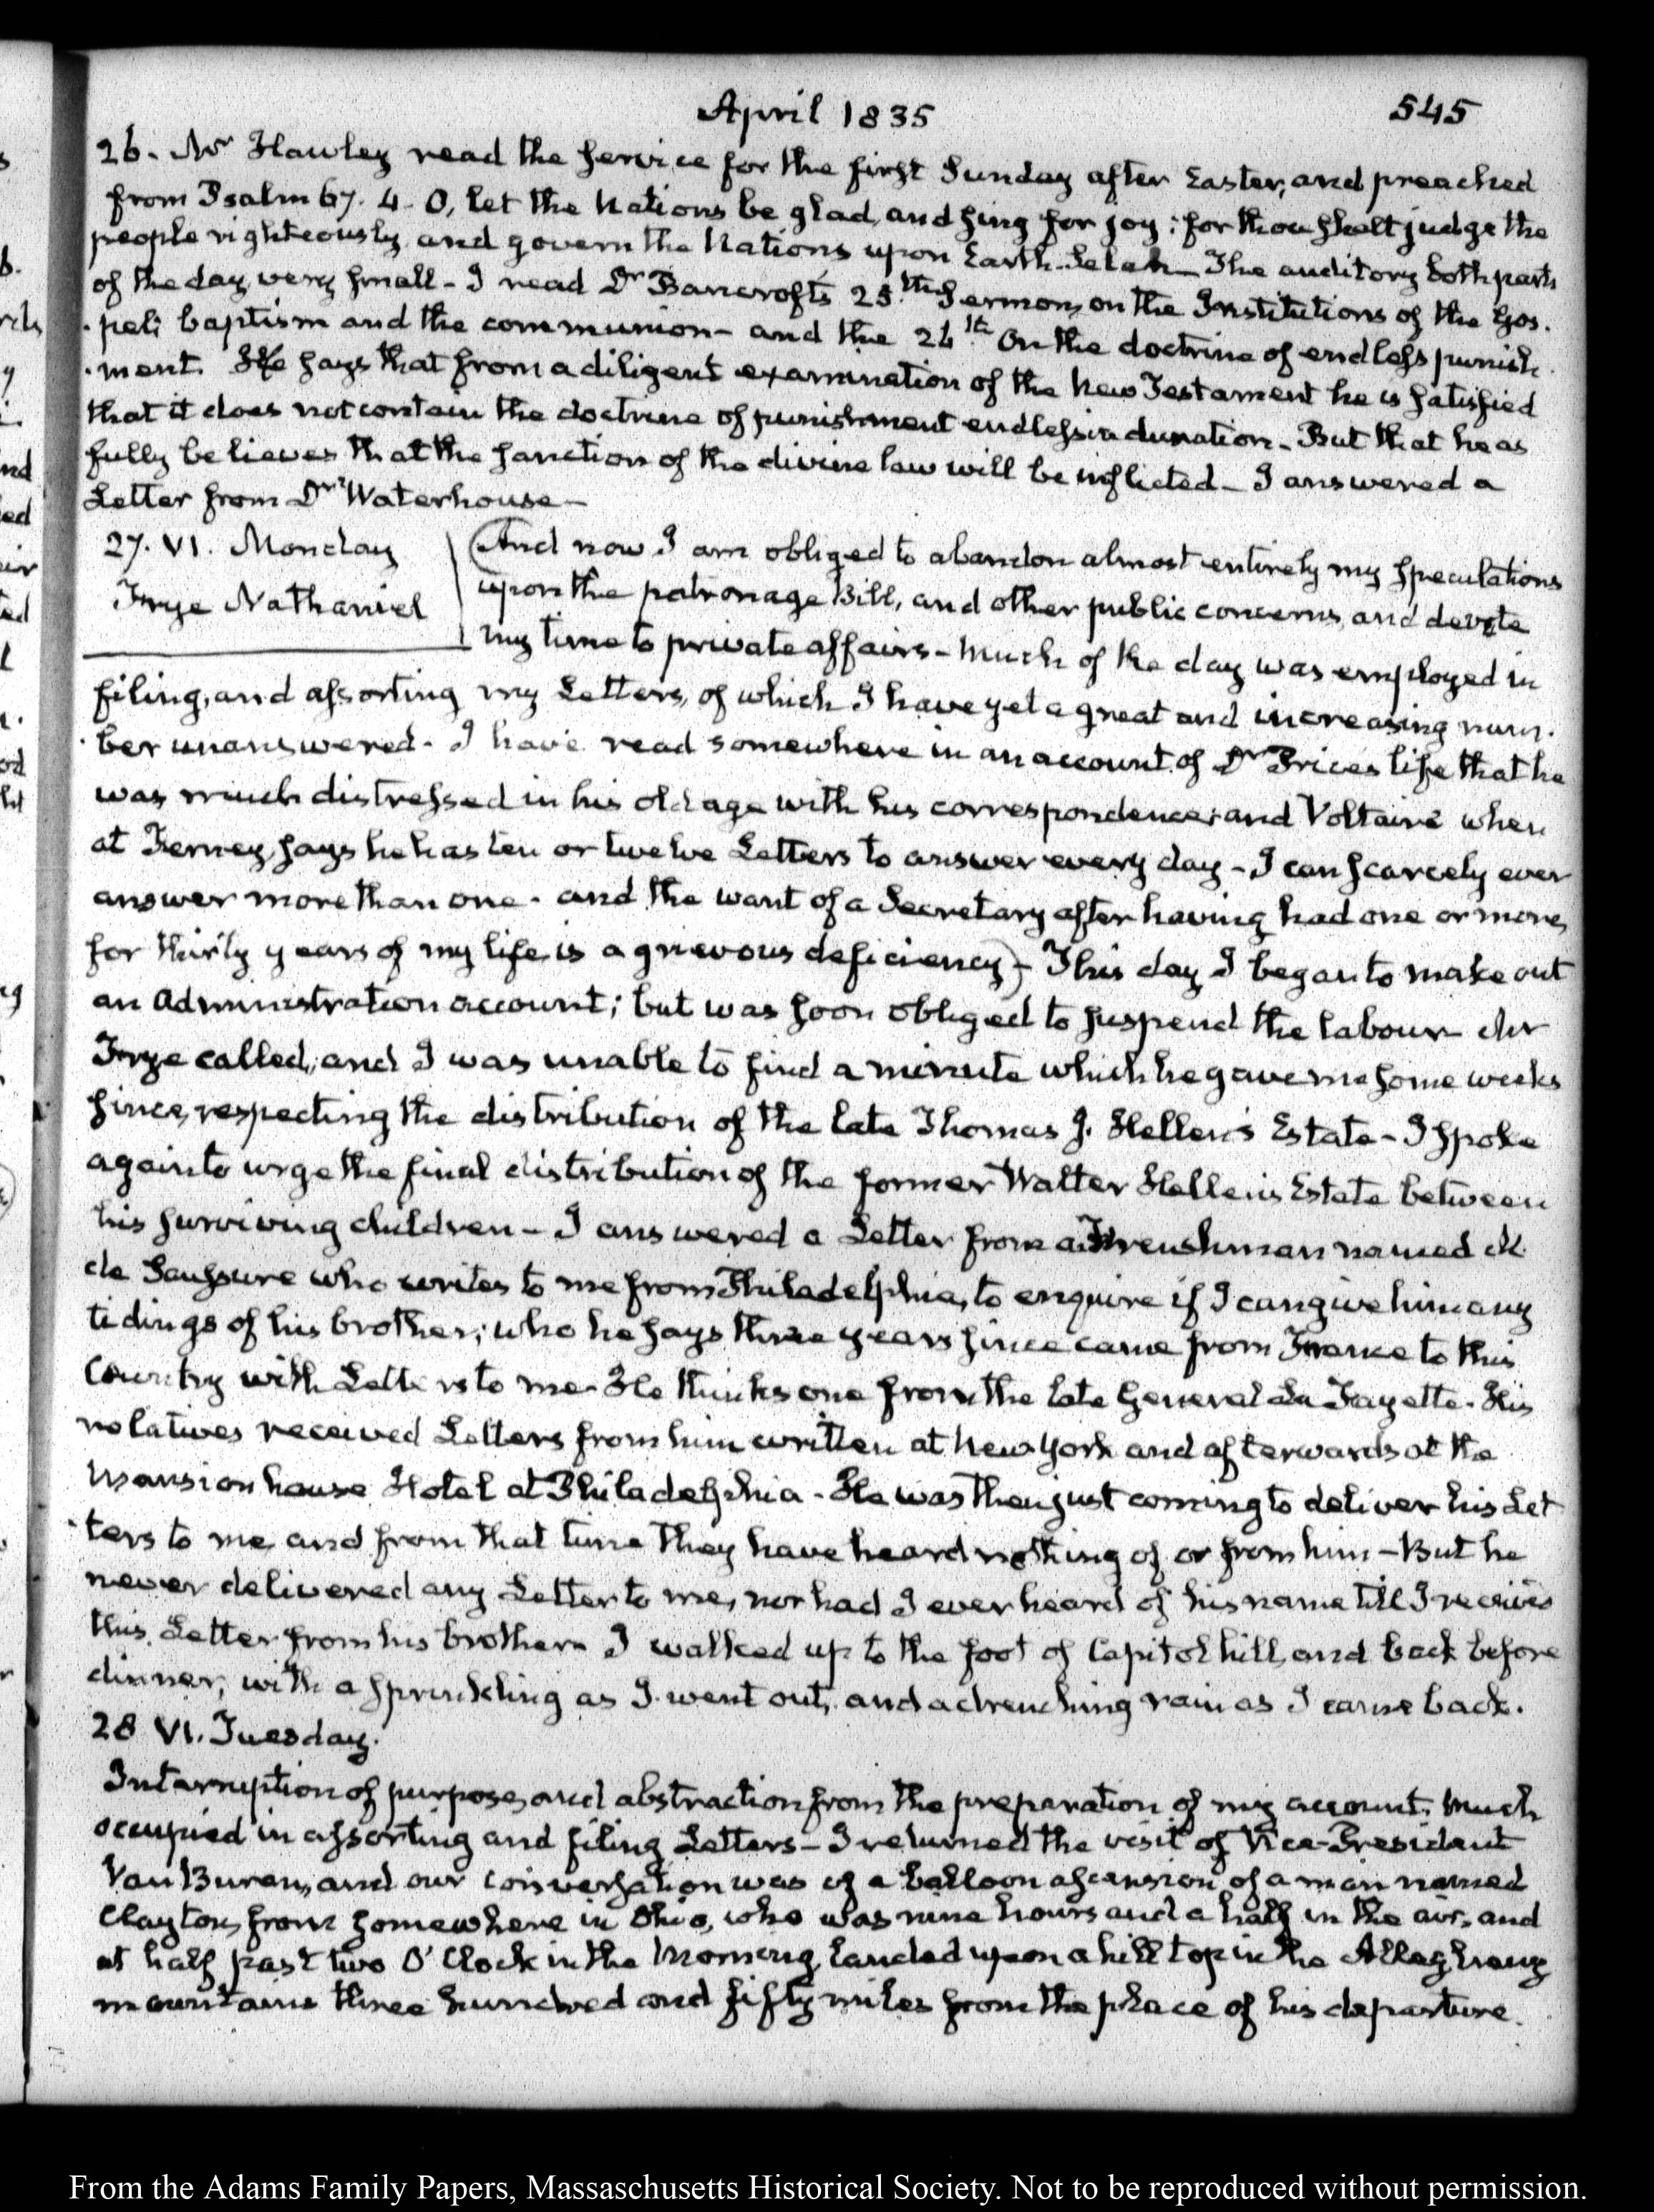 April 1835
545
26. Mr Hawley read the service for the first Sunday after Easter, and preached
from Psalm 67. 4. O, let the Nations be glad, and sing for joy; for thou shalt judge the
people righteously, and govern the Nations upon Earth. Selah— The auditory both parts
of the day very small - I read Dr Bancroft's 25th Sermon, on the Institutions of the Gos.
pel; baptism and the communion - and the 26th On the doctrine of endless punish.
ment. He says that from a diligent examination of the New Testament he is satisfied
that it does not contain the doctrine of punishment endless in duration - But that he as
fully believes that the sanction of the divine law will be inflicted - I answered a
Letter from Dr Waterhouse -
27. VI. Monday
Frye Nathaniel
(And now I am obliged to abandon almost entirely my speculations
upon the patronage Bill, and other public concerns, and devote
my time to private affairs - Much of the day was employed in
filing, and assorting my Letters, of which I have yet a great and increasing num.
ber unanswered - I have read somewhere in an account of Dr Prices life that he
was much distressed in his old age with his correspondence; and Voltaire when
at Ferney, says he has ten or twelve Letters to answer every day - I can scarcely ever
answer more than one - and the want of a Secretary after having had one or more,
for thirty years of my life, is a grievous deficiency) - This day I began to make out
an Administration account; but was soon obliged to suspend the labour - Mr
Frye called, and I was unable to find a minute which he gave me some weeks
since, respecting the distribution of the late Thomas J. Hellen's Estate - I spoke
again to urge the final distribution of the former Walter Hellen's Estate between
his surviving children - I answered a Letter from a Frenchman named M.
de Saussure who writes to me from Philadelphia, to enquire if I can give him any
tidings of his brother; who he says three years since came from France to this
Country with Letters to me - He thinks one from the late General La Fayette. His
relatives received Letters from him written at New York and afterwards at the
Mansion house Hotel at Philadelphia - He was then just coming to deliver his Let
ters to me, and from that time they have heard nothing of or from him - But he
never delivered any Letter to me, nor had I ever heard of his name till I received
this Letter from his brother - I walked up to the foot of Capitol hill, and back before
dinner, with a sprinkling as I went out, and a drenching rain as I came back.
28 VI. Tuesday.
Interruption of purpose, and abstraction from the preparation of my account. Much
occupied in assorting and filing Letters - I returned the visit of Vice-President
Van Buren, and our conversation was of a balloon ascension of a man named
Clayton, from somewhere in Ohio, who was nine hours and a half in the air, and
at half past two O'Clock in the Morning, landed upon a hill top in the Alleghany
mountains three hundred and fifty miles from the place of his departure.
From the Adams Family Papers, Massachusetts Historical Society. Not to be reproduced without permission.